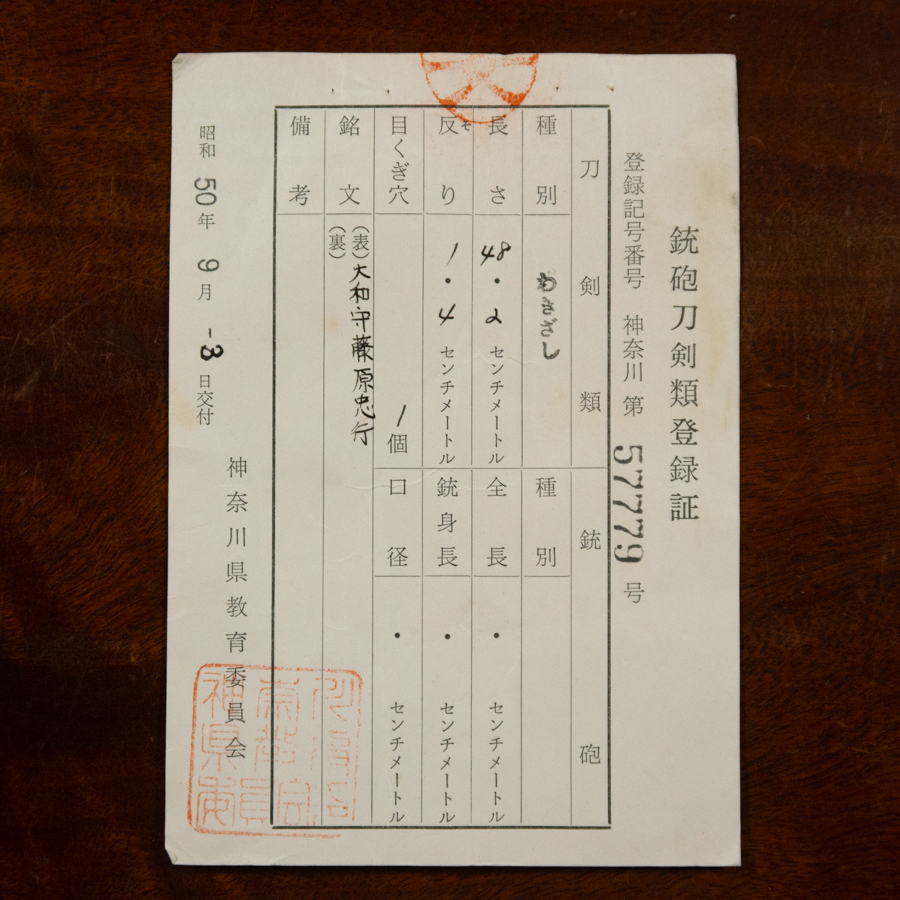 銃砲刀剣類登録証
登録記号番号 神奈川 第 57779 号
刀剣類
種別 わきざし
長さ 48.2 センチメートル
反り そ 1.4 センチメートル
目くぎ穴 1個
銘文 (表)大和守藤原忠行
(裏)
備考
銃砲
種別
全長 ・ センチメートル
銃身長 ・ センチメートル
口径 ・ センチメートル
昭和 50年 9月 -3日交付
神奈川県教育委員会